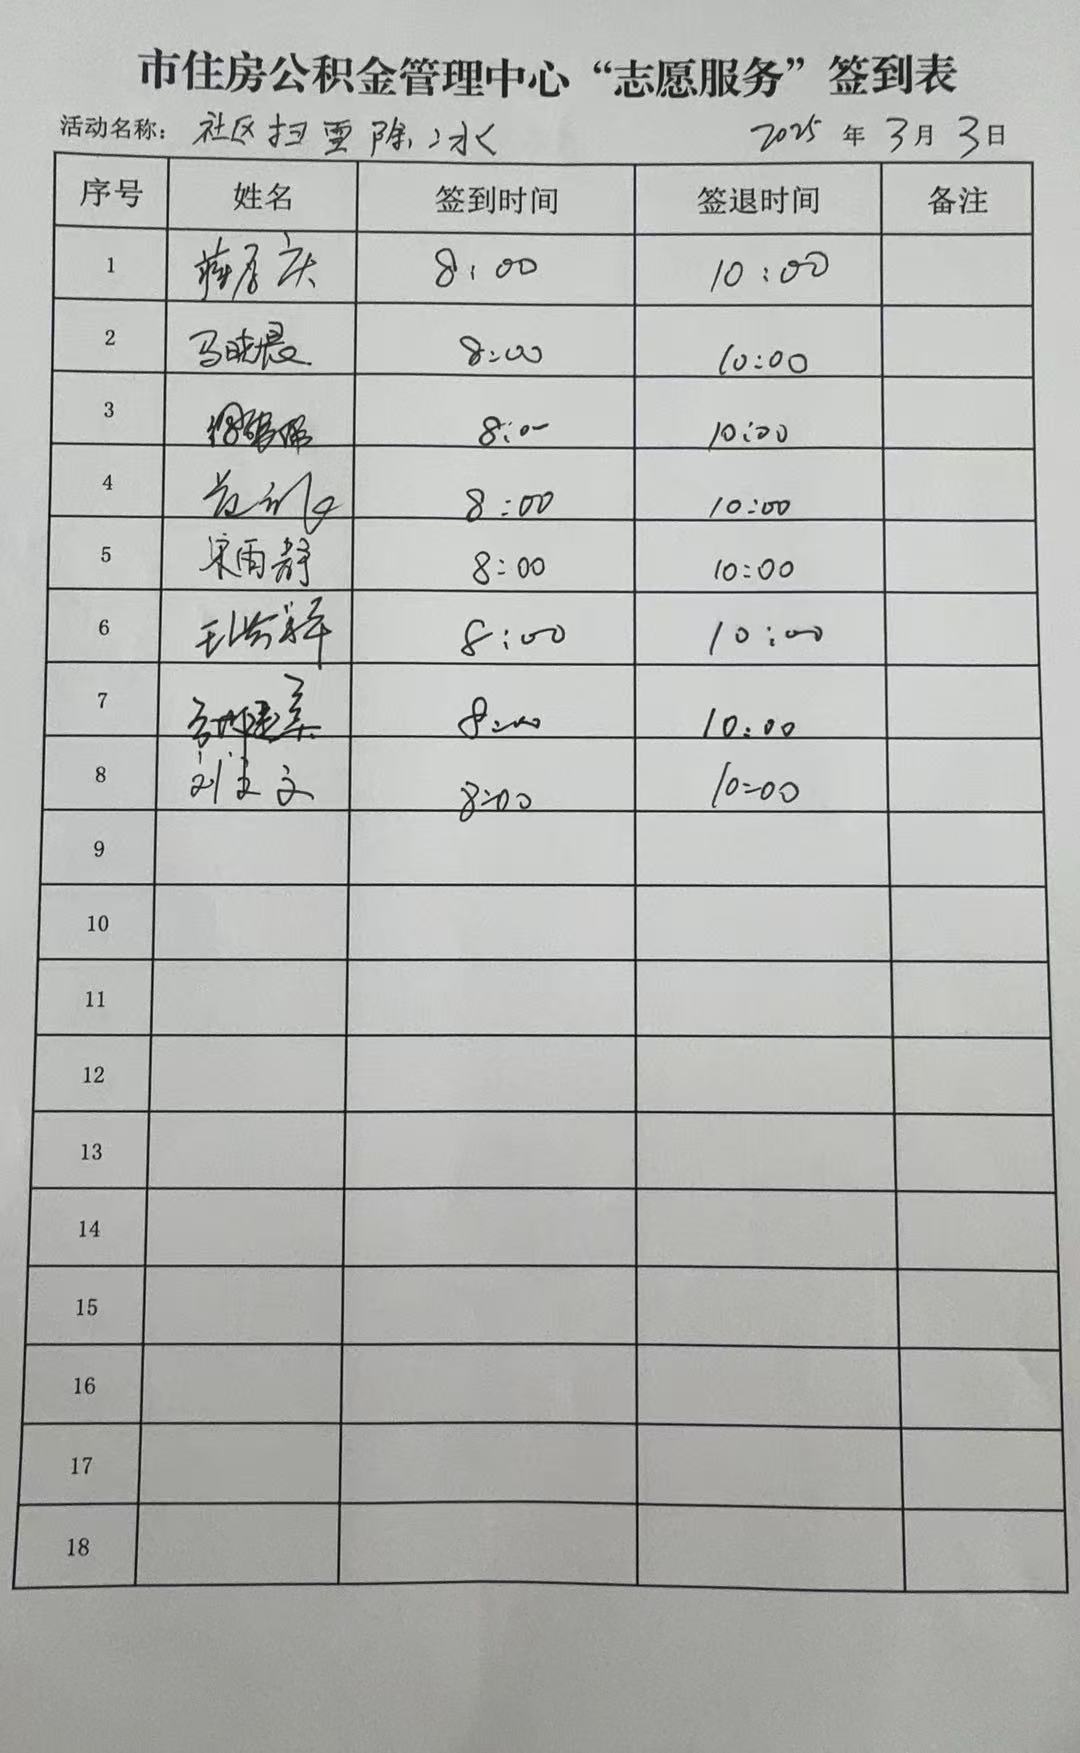 市住房公积金管理中心“志愿服务”签到表
活动名称: 社区扫雪除冰 2025年3月3日
序号 姓名 签到时间 签退时间 备注
1 8:00 10:00
2 马晓晨 8:00 10:00
3 8:00 10:00
4 8:00 10:00
5 宋雨静 8:00 10:00
6 8:00 10:00
7 8:00 10:00
8 刘文 8:00 10:00
9
10
11
12
13
14
15
16
17
18